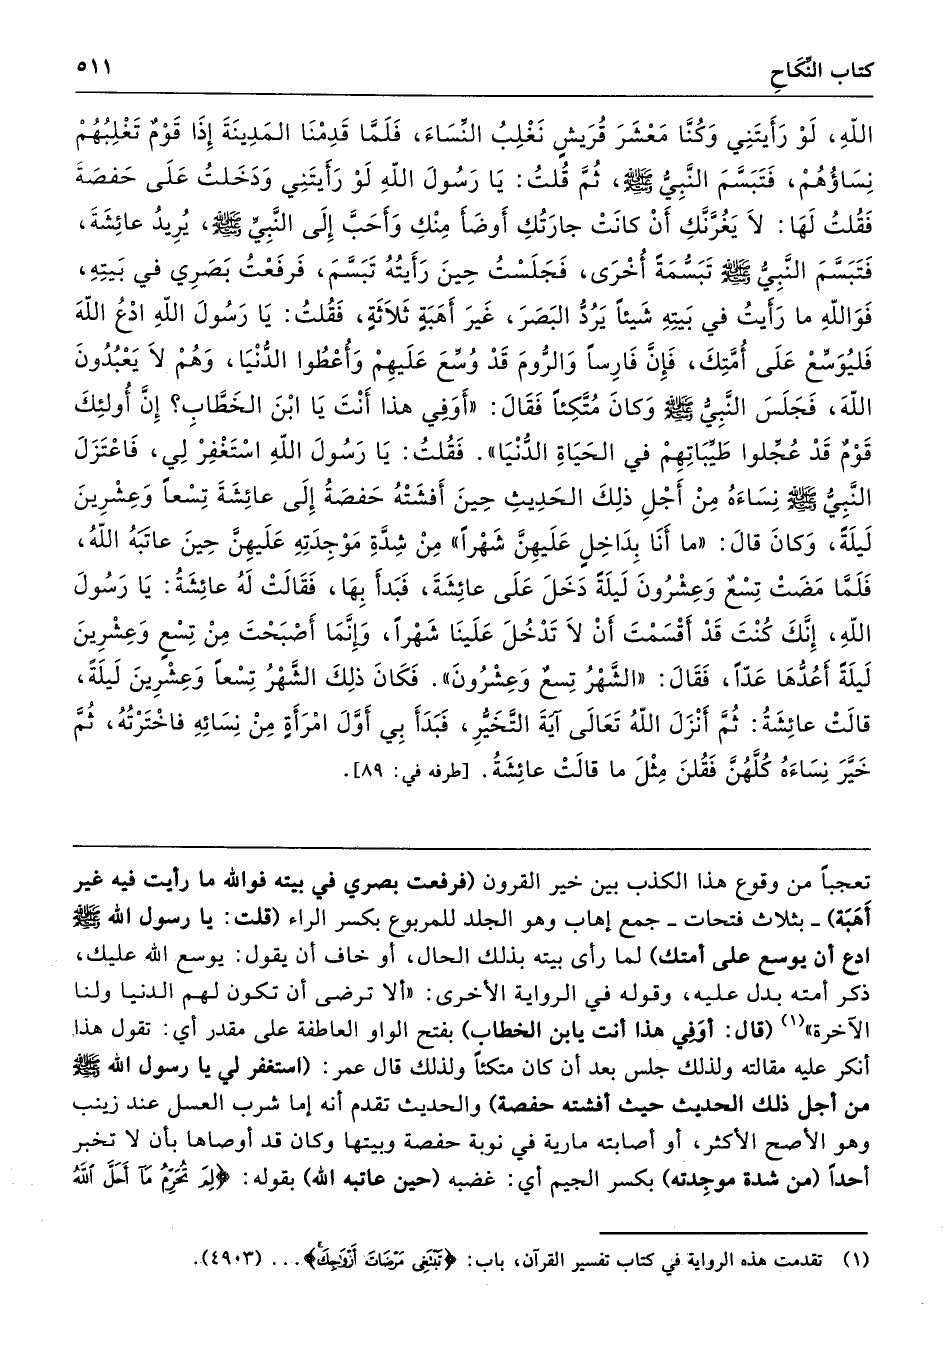 كتاب النِّكَاحِ ٥١١
اللّهِ، لَوْ رَأَيتَنِي وَكُنَّا مَعْشَرَ قُرَيشٍ نَغْلِبُ النِّسَاءَ، فَلَمَّا قَدِمْنَا المَدِينَةَ إِذَا قَوْمٌ تَغْلِبُهُمْ
نِسَاؤُهُمْ، فَتَبَسَّمَ النَّبِيُّ ﷺ، ثُمَّ قُلتُ: يَا رَسُولَ اللّهِ لَوْ رَأَيتَنِي وَدَخَلتُ عَلَى حَفصَةَ
فَقُلتُ لَهَا: لاَ يَغُرَّنَّكِ أَنْ كانَتْ جارَتُكِ أَوضَأَ مِنْكِ وَأَحَبَّ إِلَى النَّبِيِّ ﷺ، يُرِيدُ عائِشَةَ،
فَتَبَسَّمَ النَّبِيُّ ﷺ تَبَسُّمَةً أُخْرَى، فَجَلَسْتُ حِينَ رَأَيتُهُ تَبَسَّمَ، فَرفَعْتُ بَصَرِي في بَيتِهِ،
فَوَاللّهِ ما رَأَيتُ في بَيتِهِ شَيئاً يَرُدُّ البَصَرَ، غَيرَ أَهَبَةٍ ثَلاَثَةٍ، فَقُلتُ: يَا رَسُولَ اللّهِ ادْعُ اللّهَ
فَليُوَسِّعْ عَلَى أُمَّتِكَ، فَإِنَّ فَارِساً وَالرُّومَ قَدْ وُسِّعَ عَلَيهِمْ وَأُعْطُوا الدُّنْيَا، وَهُمْ لاَ يَعْبُدُونَ
اللّهَ، فَجَلَسَ النَّبِيُّ ﷺ وَكانَ مُتَّكِئاً فَقَالَ: «أَوَفِي هذا أَنْتَ يَا ابْنَ الخَطَّابِ؟ إِنَّ أُولئِكَ
قَوْمٌ قَدْ عُجِّلوا طَيِّبَاتِهِمْ في الحَيَاةِ الدُّنْيَا». فَقُلتُ: يَا رَسُولَ اللّهِ اسْتَغْفِرْ لِي، فَاعْتَزَلَ
النَّبِيُّ ﷺ نِسَاءَهُ مِنْ أَجْلِ ذلِكَ الحَدِيثِ حِينَ أَفشَتْهُ حَفصَةُ إِلَى عائِشَةَ تِسْعاً وَعِشْرِينَ
لَيلَةً، وَكانَ قالَ: «ما أَنَا بِدَاخِلٍ عَلَيهِنَّ شَهْراً» مِنْ شِدَّةِ مَوْجِدَتِهِ عَلَيهِنَّ حِينَ عاتَبَهُ اللّهُ،
فَلَمَّا مَضَتْ تِسْعٌ وَعِشْرُونَ لَيلَةً دَخَلَ عَلَى عائِشَةَ، فَبَدَأَ بِهَا، فَقَالَتْ لَهُ عائِشَةُ: يَا رَسُولَ
اللّهِ، إِنَّكَ كُنْتَ قَدْ أَقْسَمْتَ أَنْ لاَ تَدْخُلَ عَلَينَا شَهْراً، وَإِنَّمَا أَصْبَحْتَ مِنْ تِسْعٍ وَعِشْرِينَ
لَيلَةً أَعُدُّهَا عَدّاً، فَقَالَ: «الشَّهْرُ تِسعٌ وَعِشْرُونَ». فَكانَ ذلِكَ الشَّهْرُ تِسْعاً وَعِشْرِينَ لَيلَةً،
قالَتْ عائِشَةُ: ثُمَّ أَنْزَلَ اللّهُ تَعَالَى آيَةَ التَّخَيُّرِ، فَبَدَأَ بِي أَوَّلَ امْرَأَةٍ مِنْ نِسَائِهِ فَاخْتَرْتُهُ، ثُمَّ
خَيَّرَ نِسَاءَهُ كُلَّهُنَّ فَقُلنَ مِثْلَ ما قالَتْ عائِشَةُ. [طرفه في: ٨٩].
تعجباً من وقوع هذا الكذب بين خير القرون (فرفعت بصري في بيته فوالله ما رأيت فيه غير
أَهَبَة) ـ بثلاث فتحات ـ جمع إهاب وهو الجلد للمربوع بكسر الراء (قلت: يا رسول الله ﷺ
ادع أن يوسع على أمتك) لما رأى بيته بذلك الحال، أو خاف أن يقول: يوسع الله عليك،
ذكر أمته بدل عليه، وقوله في الرواية الأخرى: «ألا ترضى أن تكون لهم الدنيا ولنا
الآخرة»(١) (قال: أوَفِي هذا أنت يابن الخطاب) بفتح الواو العاطفة على مقدر أي: تقول هذا
أنكر عليه مقالته ولذلك جلس بعد أن كان متكئاً ولذلك قال عمر: (استغفر لي يا رسول الله ﷺ
من أجل ذلك الحديث حيث أفشته حفصة) والحديث تقدم أنه إما شرب العسل عند زينب
وهو الأصح الأكثر، أو أصابته مارية في نوبة حفصة وبيتها وكان قد أوصاها بأن لا تخبر
أحداً (من شدة موجِدته) بكسر الجيم أي: غضبه (حين عاتبه الله) بقوله: ﴿لِمَ تُحَرِّمُ مَآ أَحَلَّ ٱللَّهُ
(١) تقدمت هذه الرواية في كتاب تفسير القرآن، باب: ﴿تَبْتَغِي مَرْضَاتَ أَزْوَاجِكَ﴾... (٤٩٠٣).